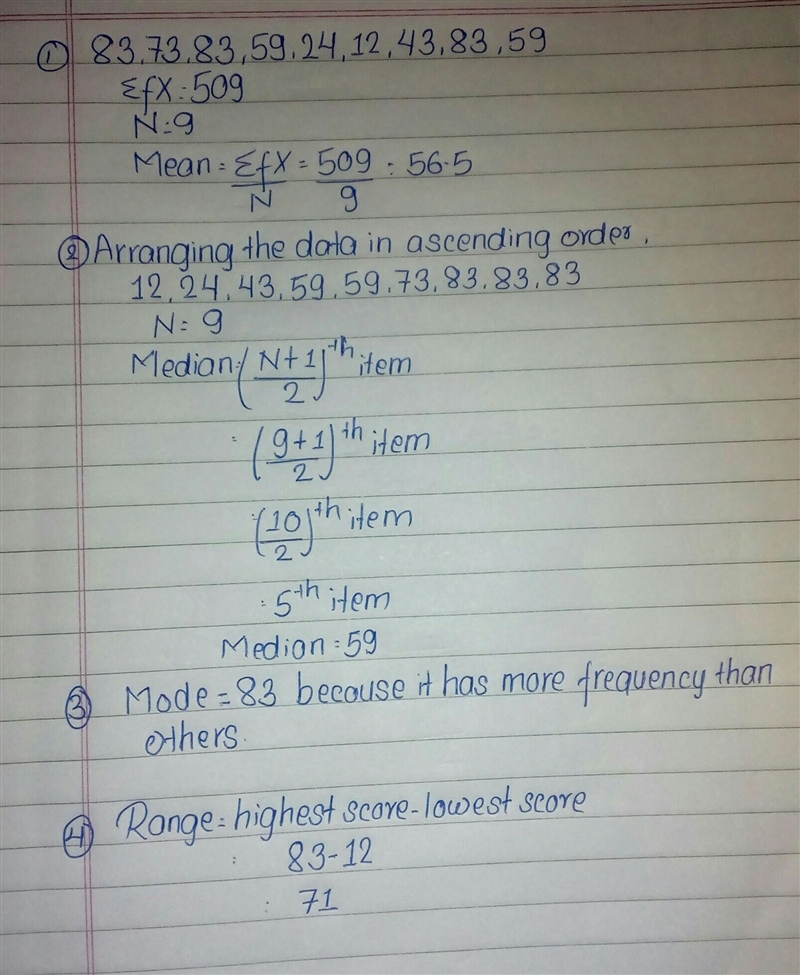 ① 83,73,83,59,24,12,43,83,59
ΣfX=509
N=9
Mean=ΣfX/N=509/9=56.5
② Arranging the data in ascending order,
12,24,43,59,59,73,83,83,83
N=9
Median=(N+1/2)th item
=(9+1/2)th item
=(10/2)th item
=5th item
Median=59
③ Mode=83 because it has more frequency than
others.
④ Range=highest score-lowest score
= 83-12
= 71